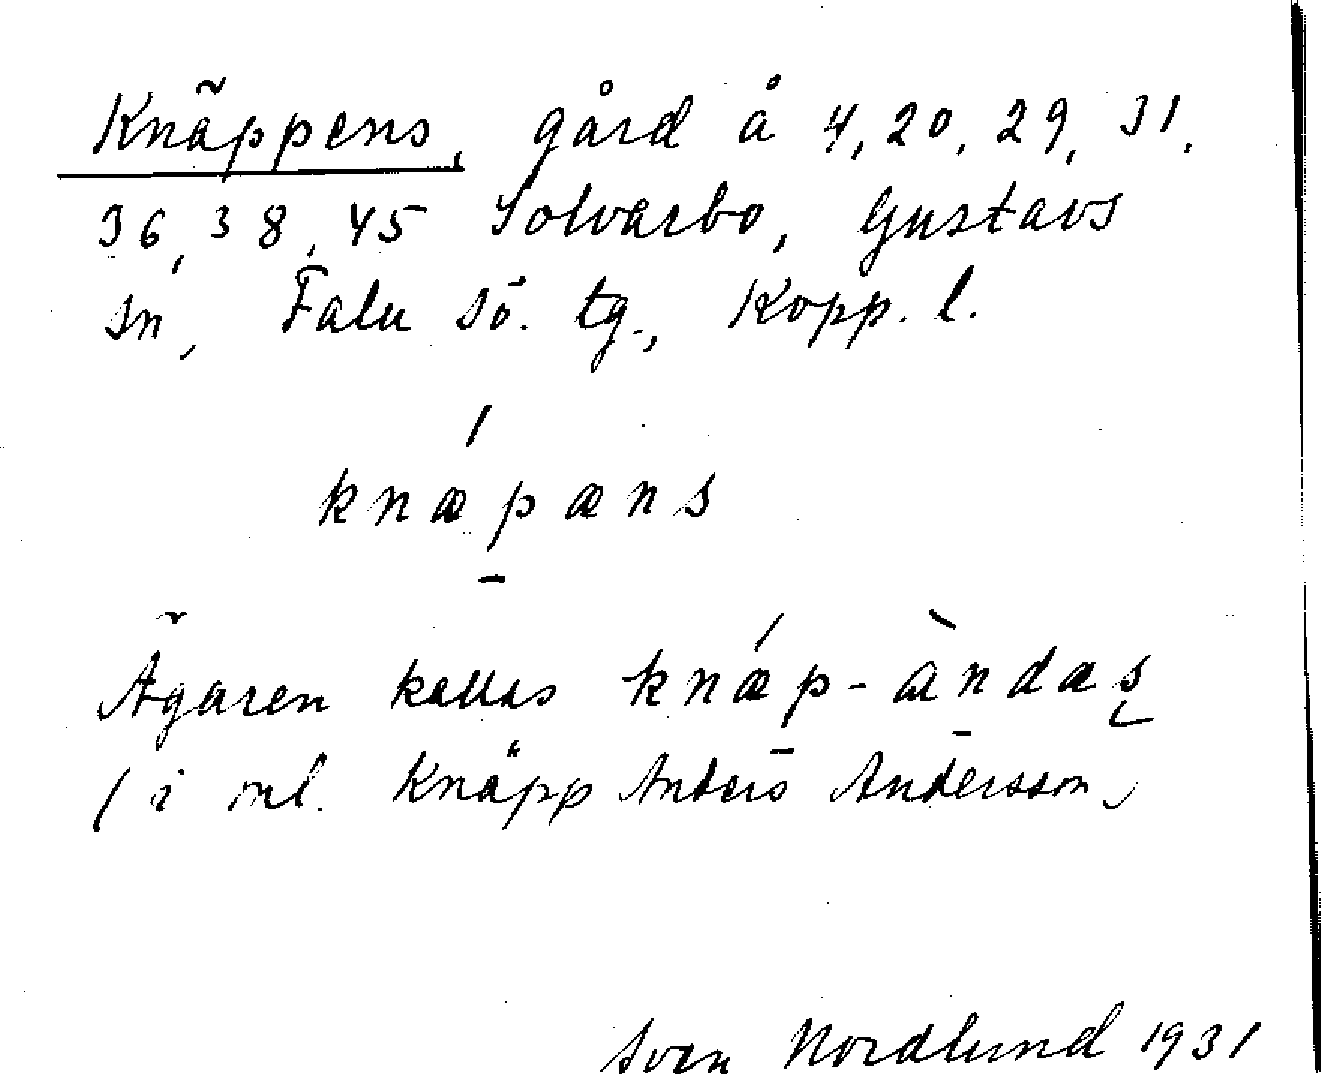 Knäppens, gård å 4, 20, 29, 31,
36, 38, 45 Solvarbo, Gustavs
sn, Falu sö. tg., Kopp. l.
knæpæns
Ägaren kallas knæp-àndæs
(i ml. Knäpp Anders Andersson)
Sven Nordlund 1931